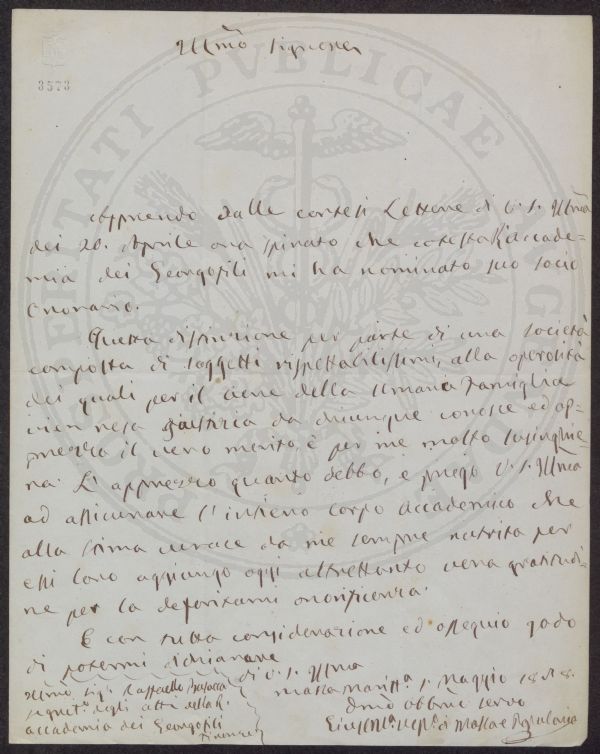 Illmo Signore
3573
PROSPERITATI PUBLICAE AUGENDAE
Apprendo dalle cortesi Lettere di V. S. Illma
dei 20. Aprile ora spirato che cotesta R. accade=
mia dei Georgofili mi ha nominato suo socio
Onorario.
Questa distinzione per parte di una società
composta di soggetti rispettabilissimi, alla operosità
dei quali per il bene della Umana Famiglia
vien resa giustizia da chiunque conosce ed ap=
prezza il vero merito, è per me molto lusinghie=
ra. L'apprezzo quanto debbo, e prego V. S. Illma
ad assicurare l'intiero corpo accademico che
alla stima verace da me sempre nutrita per
essi loro aggiungo oggi altrettanto vera gratitudi=
ne per la deferitami onorificenza.
E con tutta considerazione ed ossequio godo
di potermi dichiarare
di V. S. Illma
Massa Maritt.a Maggio
Illmo Sig. Raffaello Busacca
Segret. degli atti della R.
accademia dei Georgofili
Firenze
Dmo Obbmo servo
Vesc. di Massa e Populonia